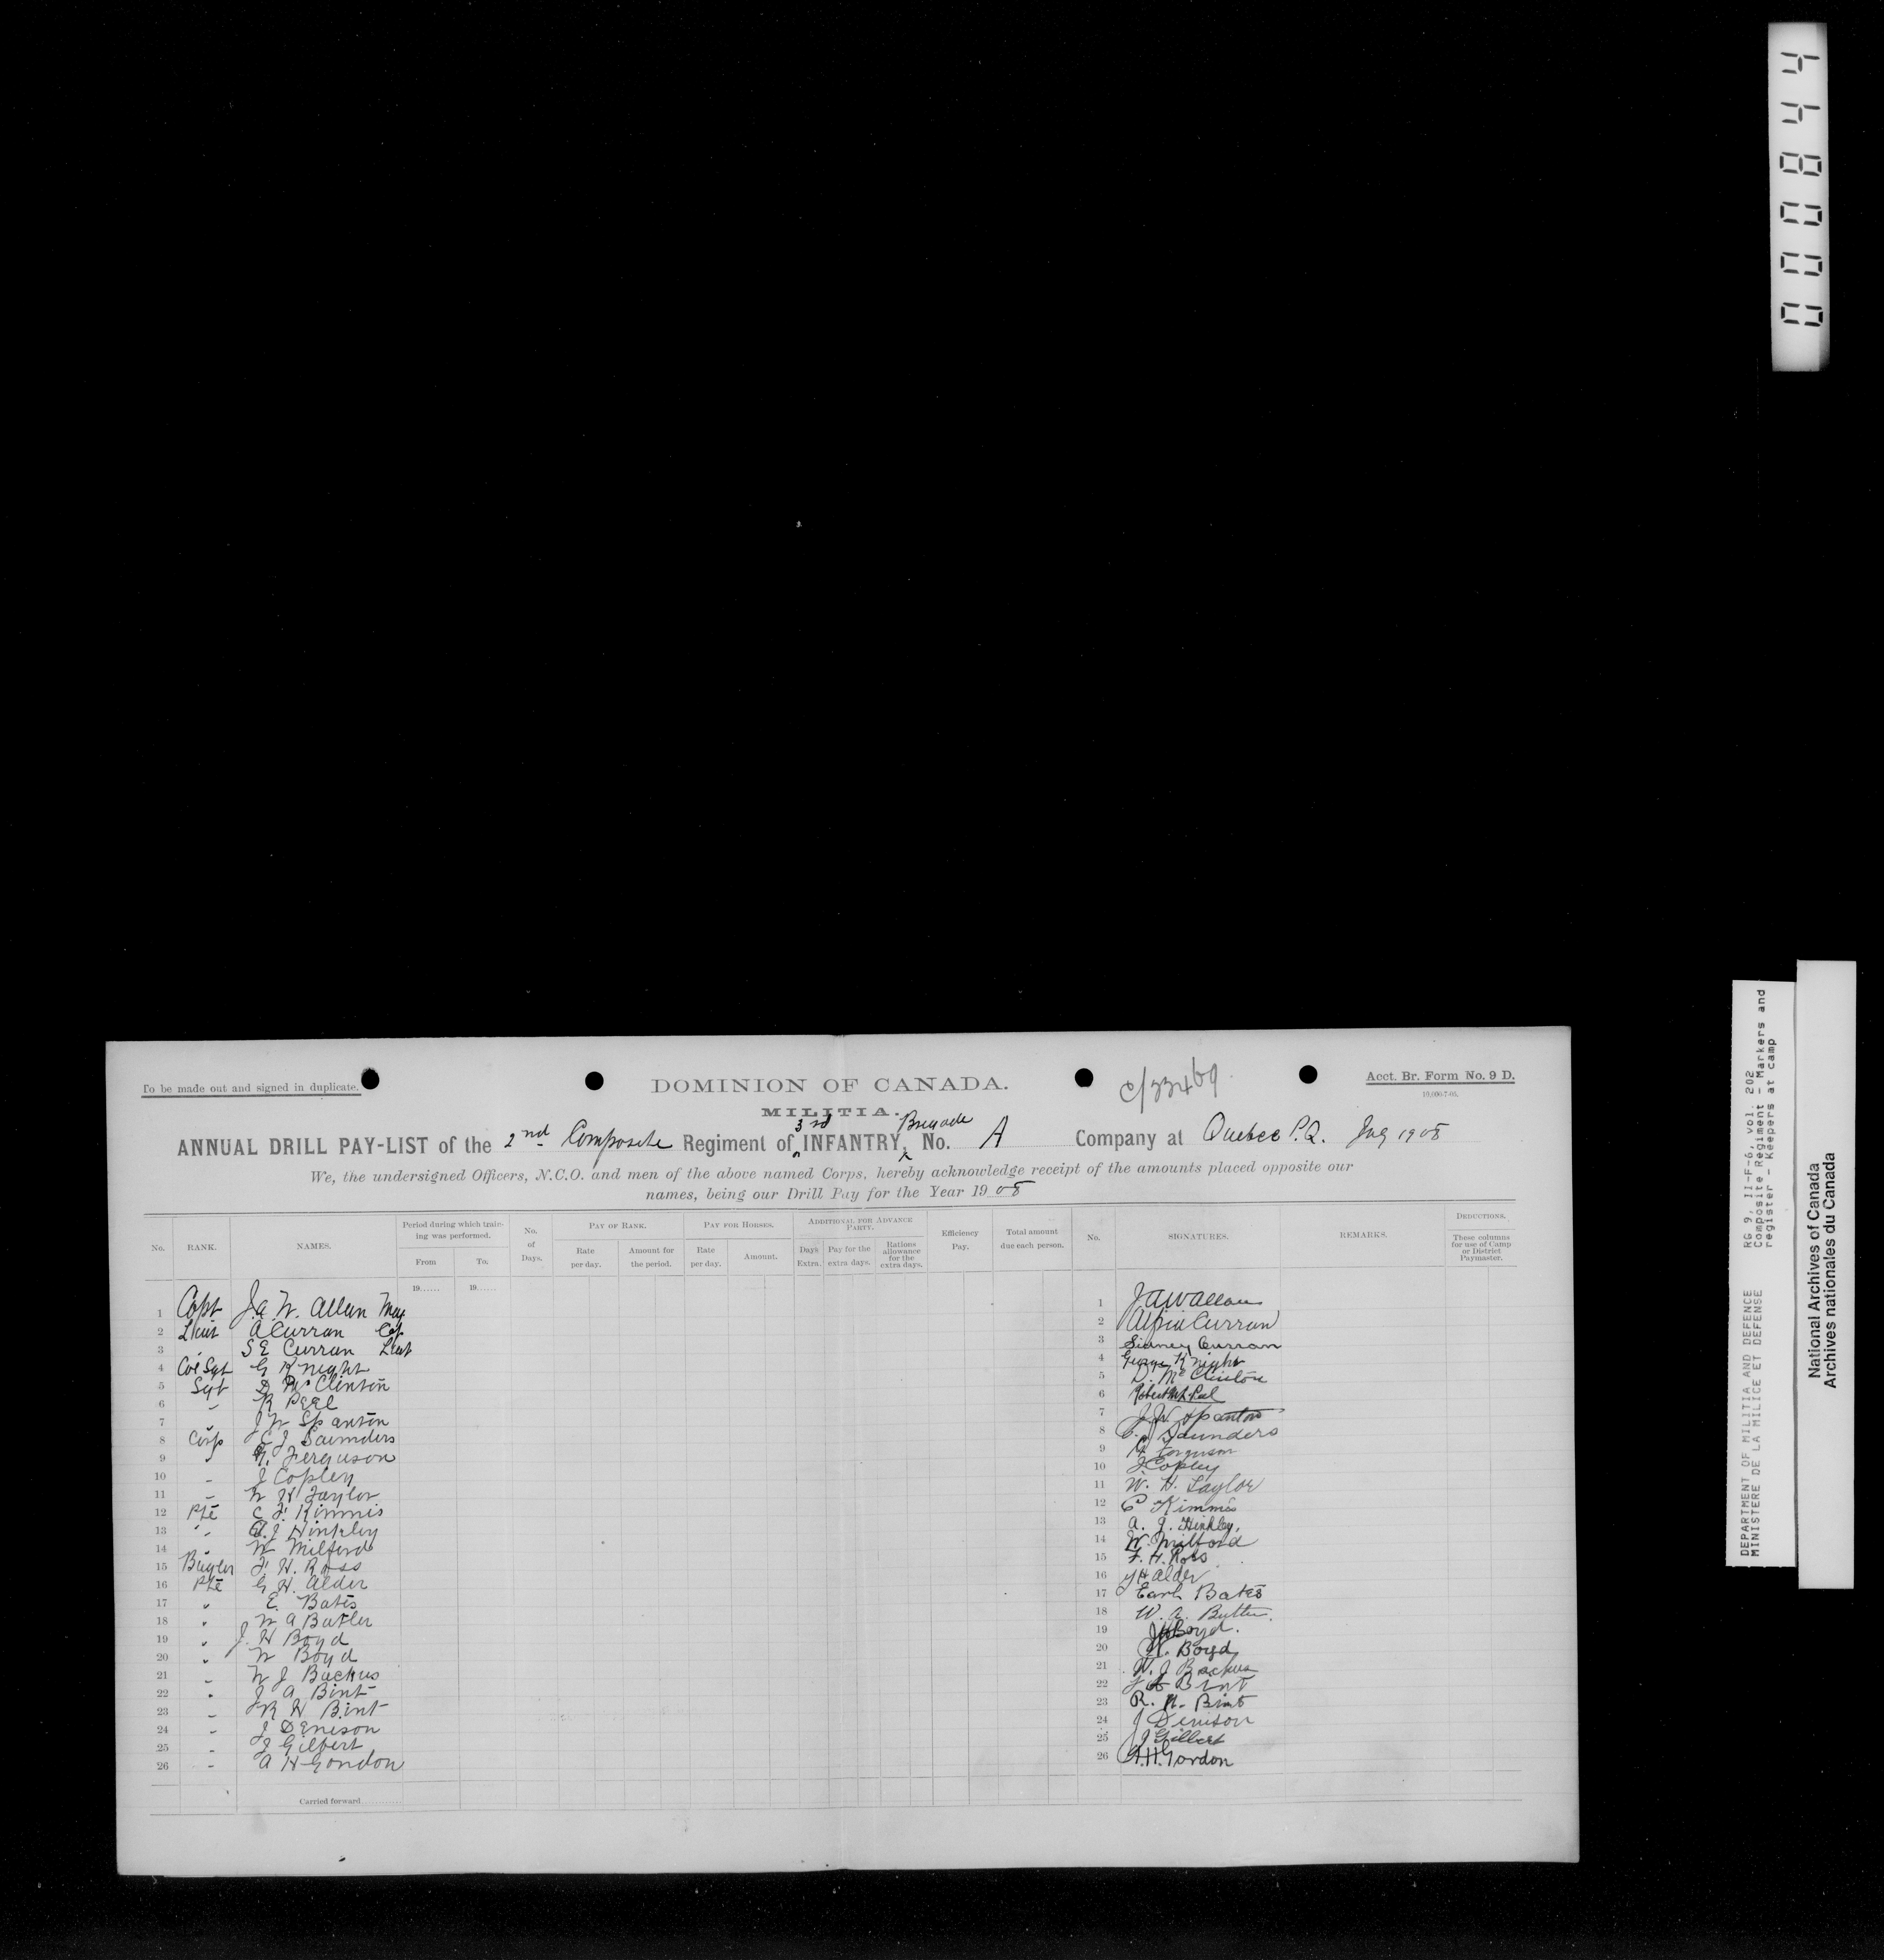 000844
To be made out and signed in duplicate.
DOMINION OF CANADA.
c/33469
Acct. Br. Form No. 9 D.
MILITIA.
ANNUAL DRILL PAY-LIST of the 2nd Composite Regiment of 3rd INFANTRY, Brigade No. A Company at Quebec P.Q. 1908
We, the undersigned Officers, N.C.O. and men of the above named Corps, hereby acknowledge receipt of the amounts placed opposite our
names, being our Drill Pay for the Year 1908
No. RANK. NAMES. Period during which training was performed. From To. No. of Days. PAY OF RANK. Rate per day. Amount for the period. PAY FOR HORSES. Rate per day. Amount. ADDITIONAL FOR ADVANCE PARTY. Days Extra. Pay for the extra days. Rations allowance for the extra days. Efficiency Pay. Total amount due each person. No. SIGNATURES. REMARKS. DEDUCTIONS. These columns for use of Camp or District Paymaster.
19...... 19......
1 Capt J.A. W. Allan 1 JAWAllan
2 Lieut A Curran 2 Curran
3 " S E Curran Lieut 3 Sidney Curran
4 Col Sgt G Knight 4 George Knight
5 Sgt D McClinton 5 D. McClinton
6 " R Peel 6 Robert Peel
7 " J W Spanton 7 J.W. Spanton
8 Corp C J Saunders 8 C. J Saunders
9 " G. Ferguson 9 G Ferguson
10 " J Copley 10 J Copley
11 " W H Taylor 11 W. H. Taylor
12 Pte C F. Kimmis 12 C Kimmis
13 " A. J Hinkley 13 A. J. Hinkley.
14 " W Milford 14 W. Milford
15 Bugler F. H. Ross 15 F. H. Ross
16 Pte G H. Alder 16 G H Alder
17 " E. Bates 17 Earl Bates
18 " W A Butler 18 W. A. Butler.
19 " J. H Boyd 19 J H Boyd.
20 " W Boyd 20 W. Boyd
21 " W J Backus 21 W. J Backus
22 " J A Bint 22 J A Bint
23 " R H Bint 23 R. H. Bint
24 " J Denison 24 J Denison
25 " J Gilbert 25 J Gilbert
26 " A H Gordon 26 A.H. Gordon
Carried forward
DEPARTMENT OF MILITIA AND DEFENCE
MINISTERE DE LA MILICE ET DEFENSE
RG 9, II-F-6, vol. 202
Composite Regiment - Markers and
register - Keepers at camp
National Archives of Canada
Archives nationales du Canada